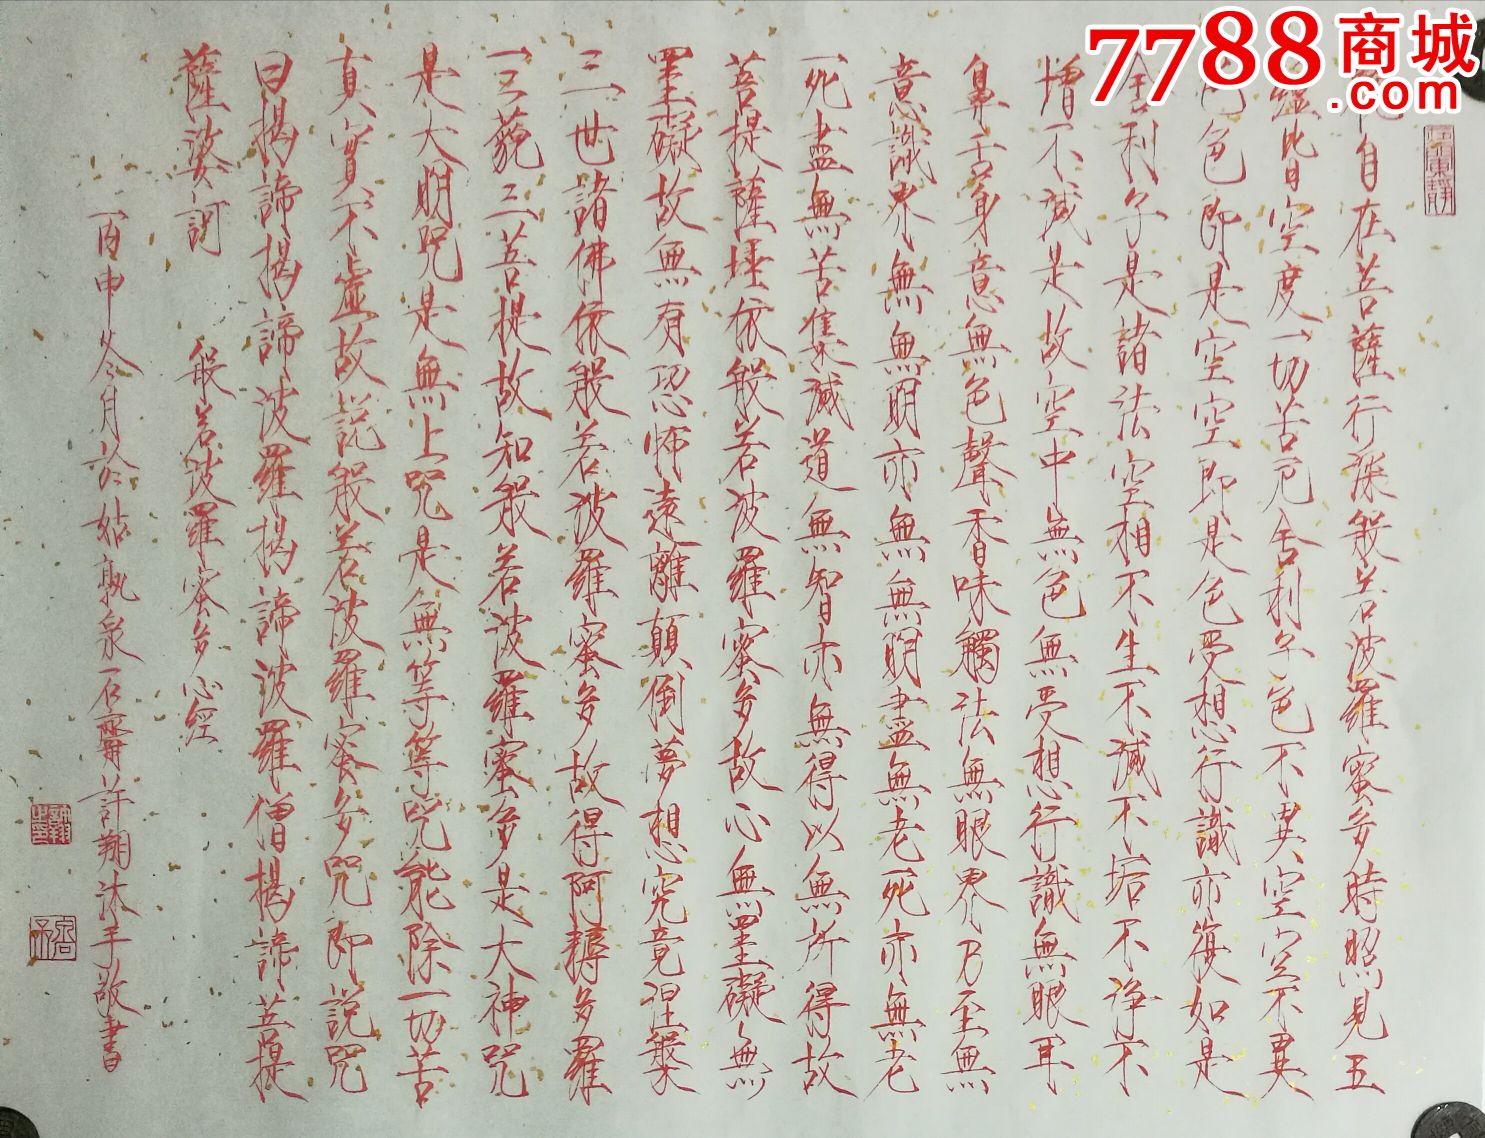 7788商城
.com
自在菩薩行深般若波羅蜜多時照見五
蘊皆空度一切苦厄舍利子色不異空空不異
色色即是空空即是色受想行識亦復如是
舍利子是諸法空相不生不滅不垢不淨不
增不減是故空中無色無受想行識無眼耳
鼻舌身意無色聲香味觸法無眼界乃至無
意識界無無明亦無無明盡無老死亦無老
死盡無苦集滅道無智亦無得以無所得故
菩提薩埵依般若波羅蜜多故心無罣礙無
罣礙故無有恐怖遠離顛倒夢想究竟涅槃
三世諸佛依般若波羅蜜多故得阿耨多羅
三藐三菩提故知般若波羅蜜多是大神咒
是大明咒是無上咒是無等等咒能除一切苦
真實不虛故說般若波羅蜜多咒即說咒
曰揭諦揭諦波羅揭諦波羅僧揭諦菩提
薩婆訶 般若波羅蜜多心經
丙申冬月於姑孰泉石齋許翔沐手敬書